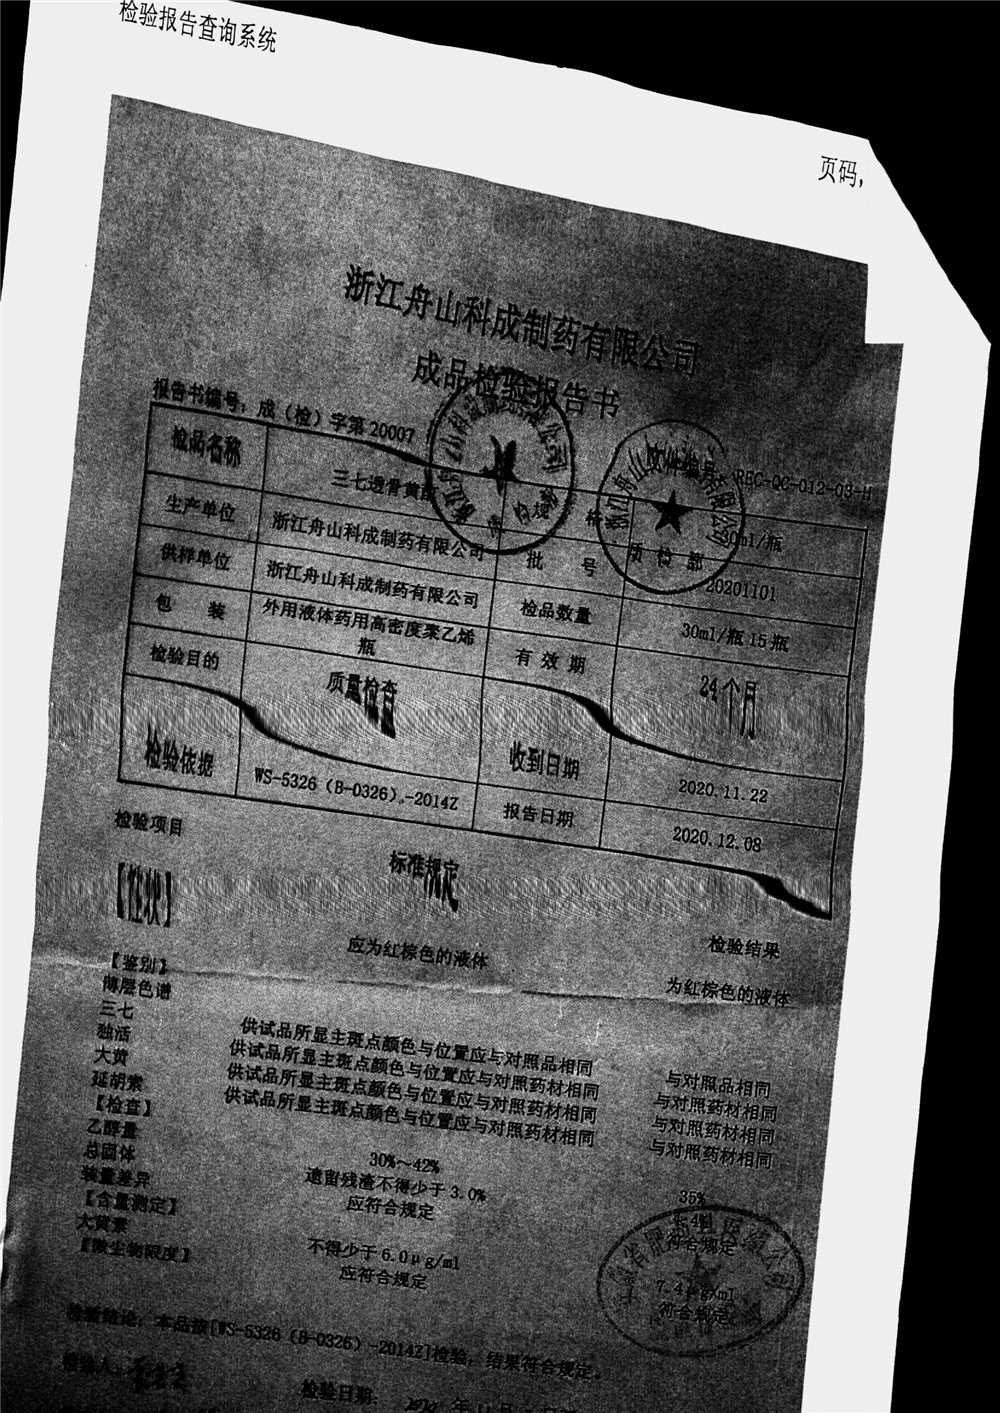 检验报告查询系统
页码,
浙江舟山科成制药有限公司
成品检验报告书
报告书编号: 成（检）字第 20007
文件编号: REC-QC-012-03-H
检品名称 三七透骨黄 规 格 30ml/瓶
生产单位 浙江舟山科成制药有限公司 批 号 20201101
供样单位 浙江舟山科成制药有限公司 检品数量 30ml/瓶 15瓶
包 装 外用液体药用高密度聚乙烯
瓶 有 效 期 24个月
检验目的 质量检查 收到日期 2020.11.22
检验依据 WS-5326（B-0326）-2014Z 报告日期 2020.12.08
检验项目 标准规定 检验结果
【性状】 应为红棕色的液体 为红棕色的液体
【鉴别】
薄层色谱
三七 供试品所显主斑点颜色与位置应与对照品相同 与对照品相同
独活 供试品所显主斑点颜色与位置应与对照药材相同 与对照药材相同
大黄 供试品所显主斑点颜色与位置应与对照药材相同 与对照药材相同
延胡索 供试品所显主斑点颜色与位置应与对照药材相同 与对照药材相同
【检查】
乙醇量 30%～42% 35%
总固体 遗留残渣不得少于 3.0%
装量差异 应符合规定 符合规定
【含量测定】
大黄素 不得少于 6.0μg/ml 7.4μg/ml
【微生物限度】 应符合规定 符合规定
检验结论: 本品按[WS-5326（B-0326）-2014Z]检验, 结果符合规定。
检验人:
检验日期: 年 11 月
浙江舟山 有限公司
质检部